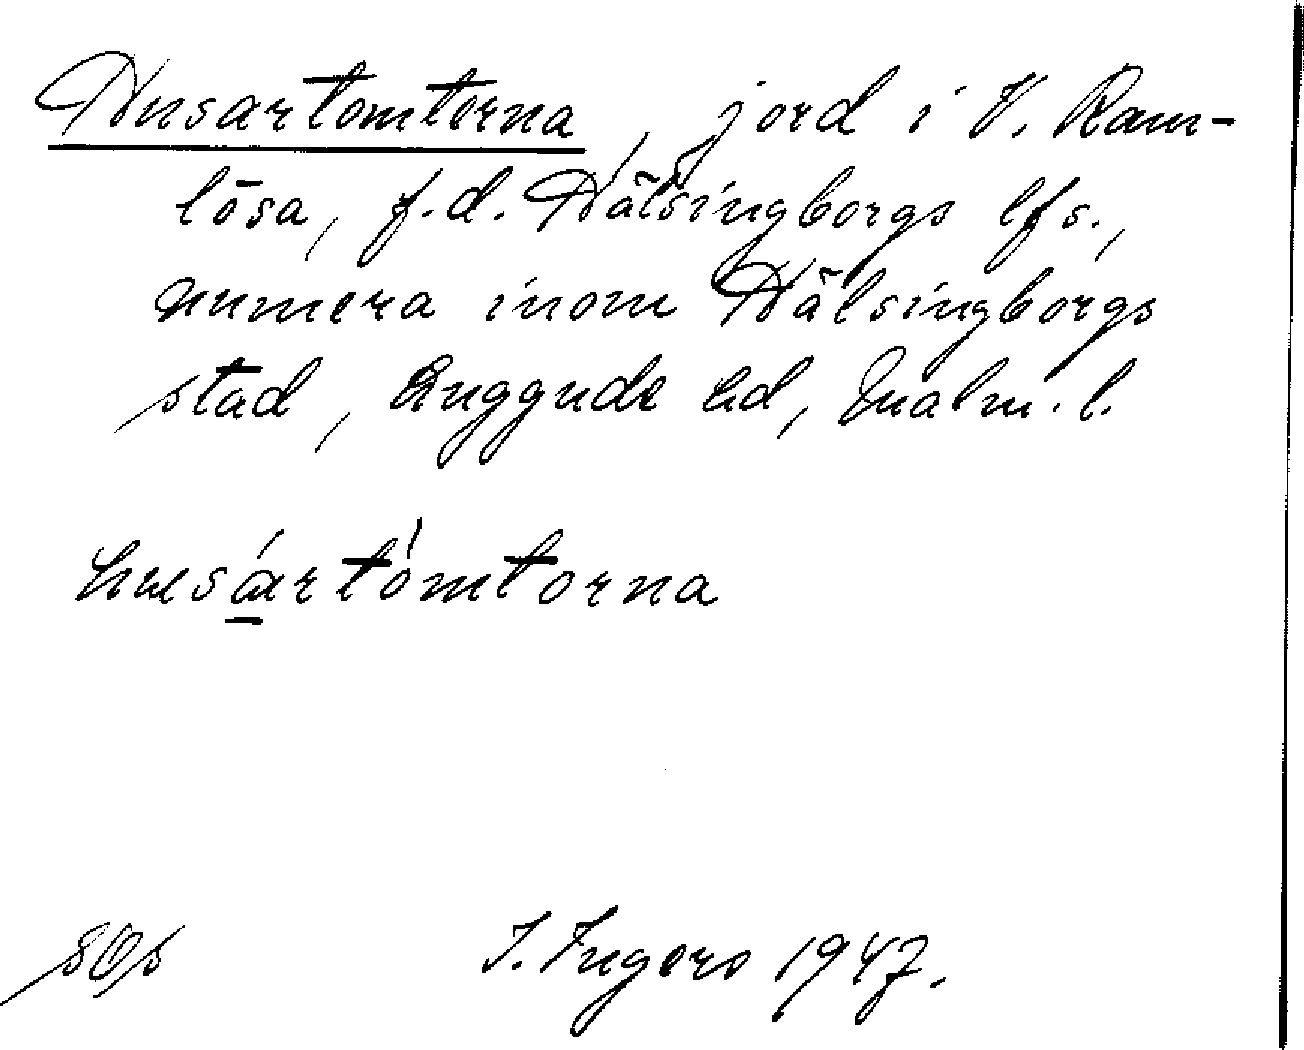 Husartomterna, jord i V. Ram-
lösa, f.d. Hälsingborgs lfs.,
numera inom Hälsingborgs
stad, Luggude hd, Malm. l.
husártòmtorna
I. Ingers 1947.